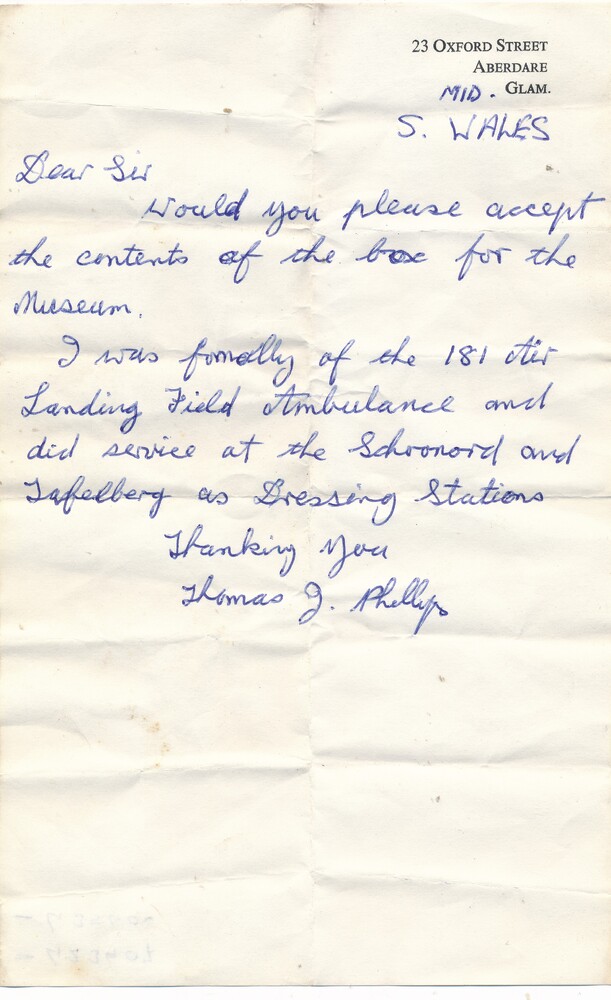 23 OXFORD STREET
ABERDARE
MID. GLAM.
S. WALES
Dear Sir
Would you please accept
the contents of the box for the
Museum.
I was fomally of the 181 Air
Landing Field Ambulance and
did service at the Schoonord and
Tafelberg as Dressing Stations
Thanking You
Thomas J. Phillips